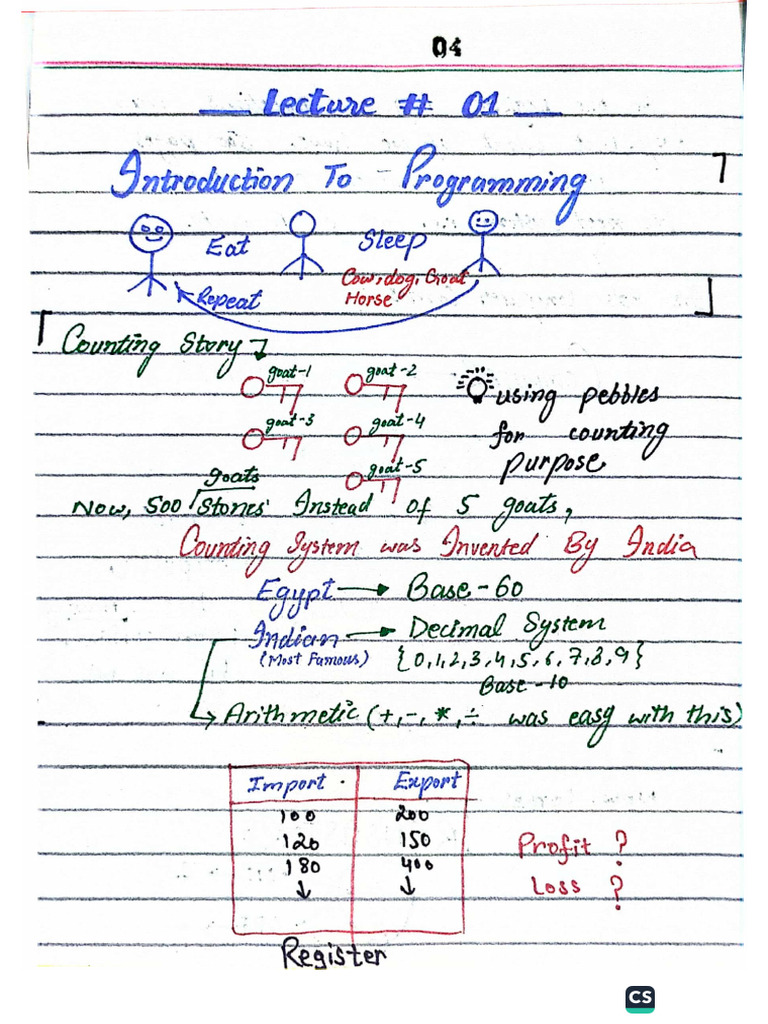 04
Lecture # 01
Introduction To Programming
Eat Sleep
Repeat Cow, dog, Goat
Horse
Counting Story
goat-1 goat-2
using pebbles
goat-3 goat-4
for counting
goat-5
purpose
goats
Now, 500 Stones Instead of 5 goats,
Counting System was Invented By India
Egypt → Base-60
Indian → Decimal System
(Most Famous) {0,1,2,3,4,5,6,7,8,9}
Base-10
Arithmetic (+,-,*,÷ was easy with this)
Import Export
100 200
120 150 Profit ?
180 400
↓ ↓ Loss ?
Register
CS